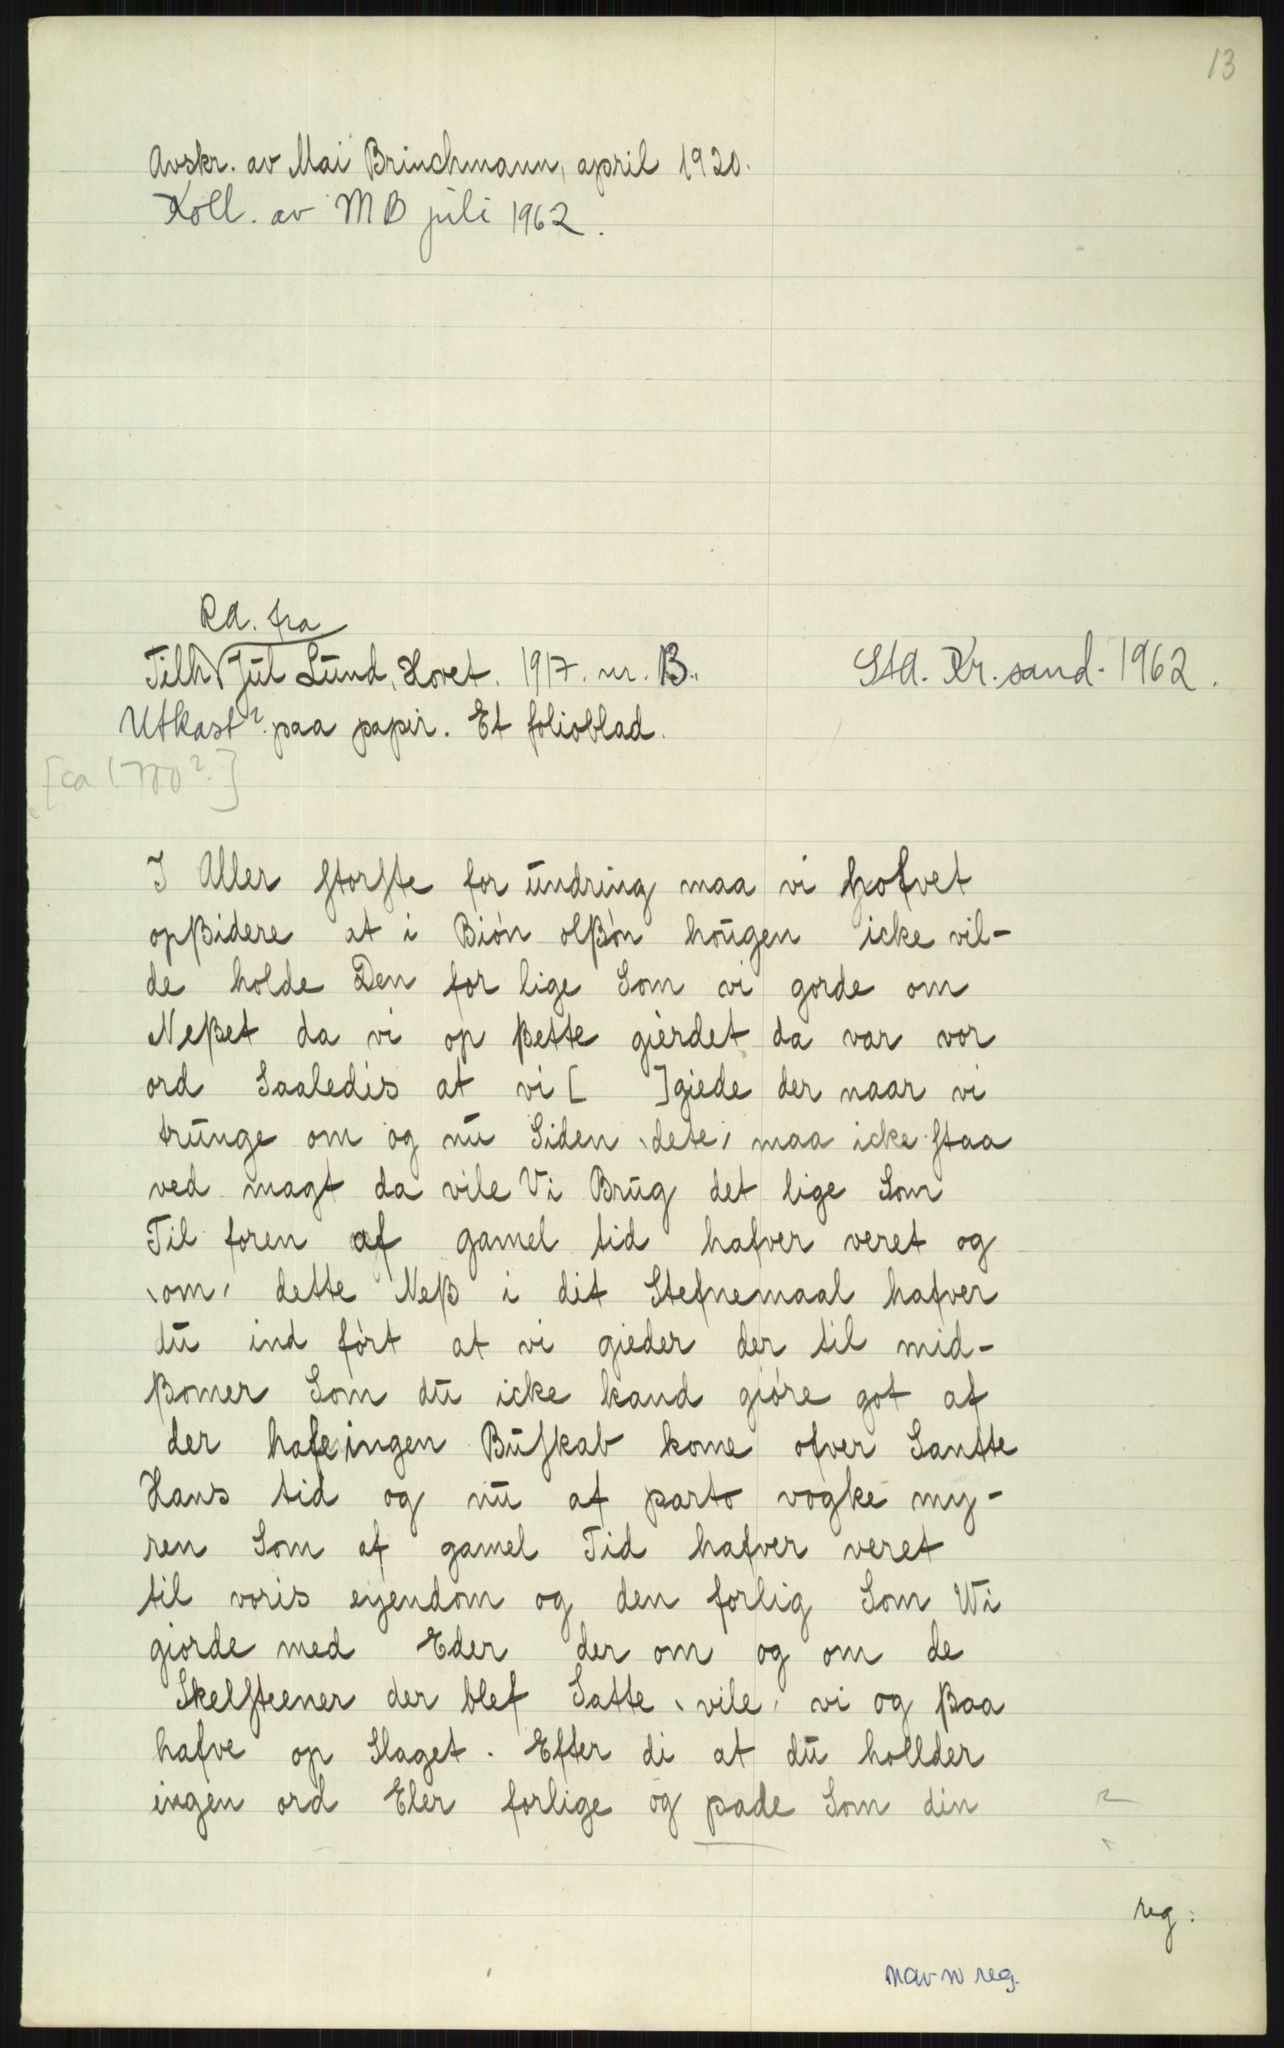 13
Avskr. av Mai Brinchmann, april 1920.
Koll. av MB juli 1962.
RA. fra
Tilh. Jul Lund, Horet. 1917. nr. 13. Sta. Kr.sand. 1962.
Utkast? paa papir. Et folioblad.
[ca 1700?]
I Aller storste for undring maa vi hofvet
opßidere at i Bión olßón hougen icke vil-
de holde Den for lige Som vi gorde om
Neßet da vi op ßette gierdet da var vor
ord Saaledis at vi [ ]giede der naar vi
trunge om og nu Siden dete maa icke staa
ved magt da vile Vi Brug det lige Som
Til foren af gamel tid hafver veret og
om dette Neß i dit Stefnemaal hafver
du ind fórt at vi gieder der til mid-
ßomer Som du icke kand gióre got af
der hafe ingen Buskab kome ofver Santte
Hans tid og nu af parto vogke my-
ren Som af gamel Tid hafver veret
til voris eyendom og den forlig Som Wi
giorde med Eder der om og om de
Skelsteener der blef Satte vile vi og ßaa
hafve op Slaget. Efter di at du hollder
ingen ord Eler forlige og pade Som din
reg.
navn reg.